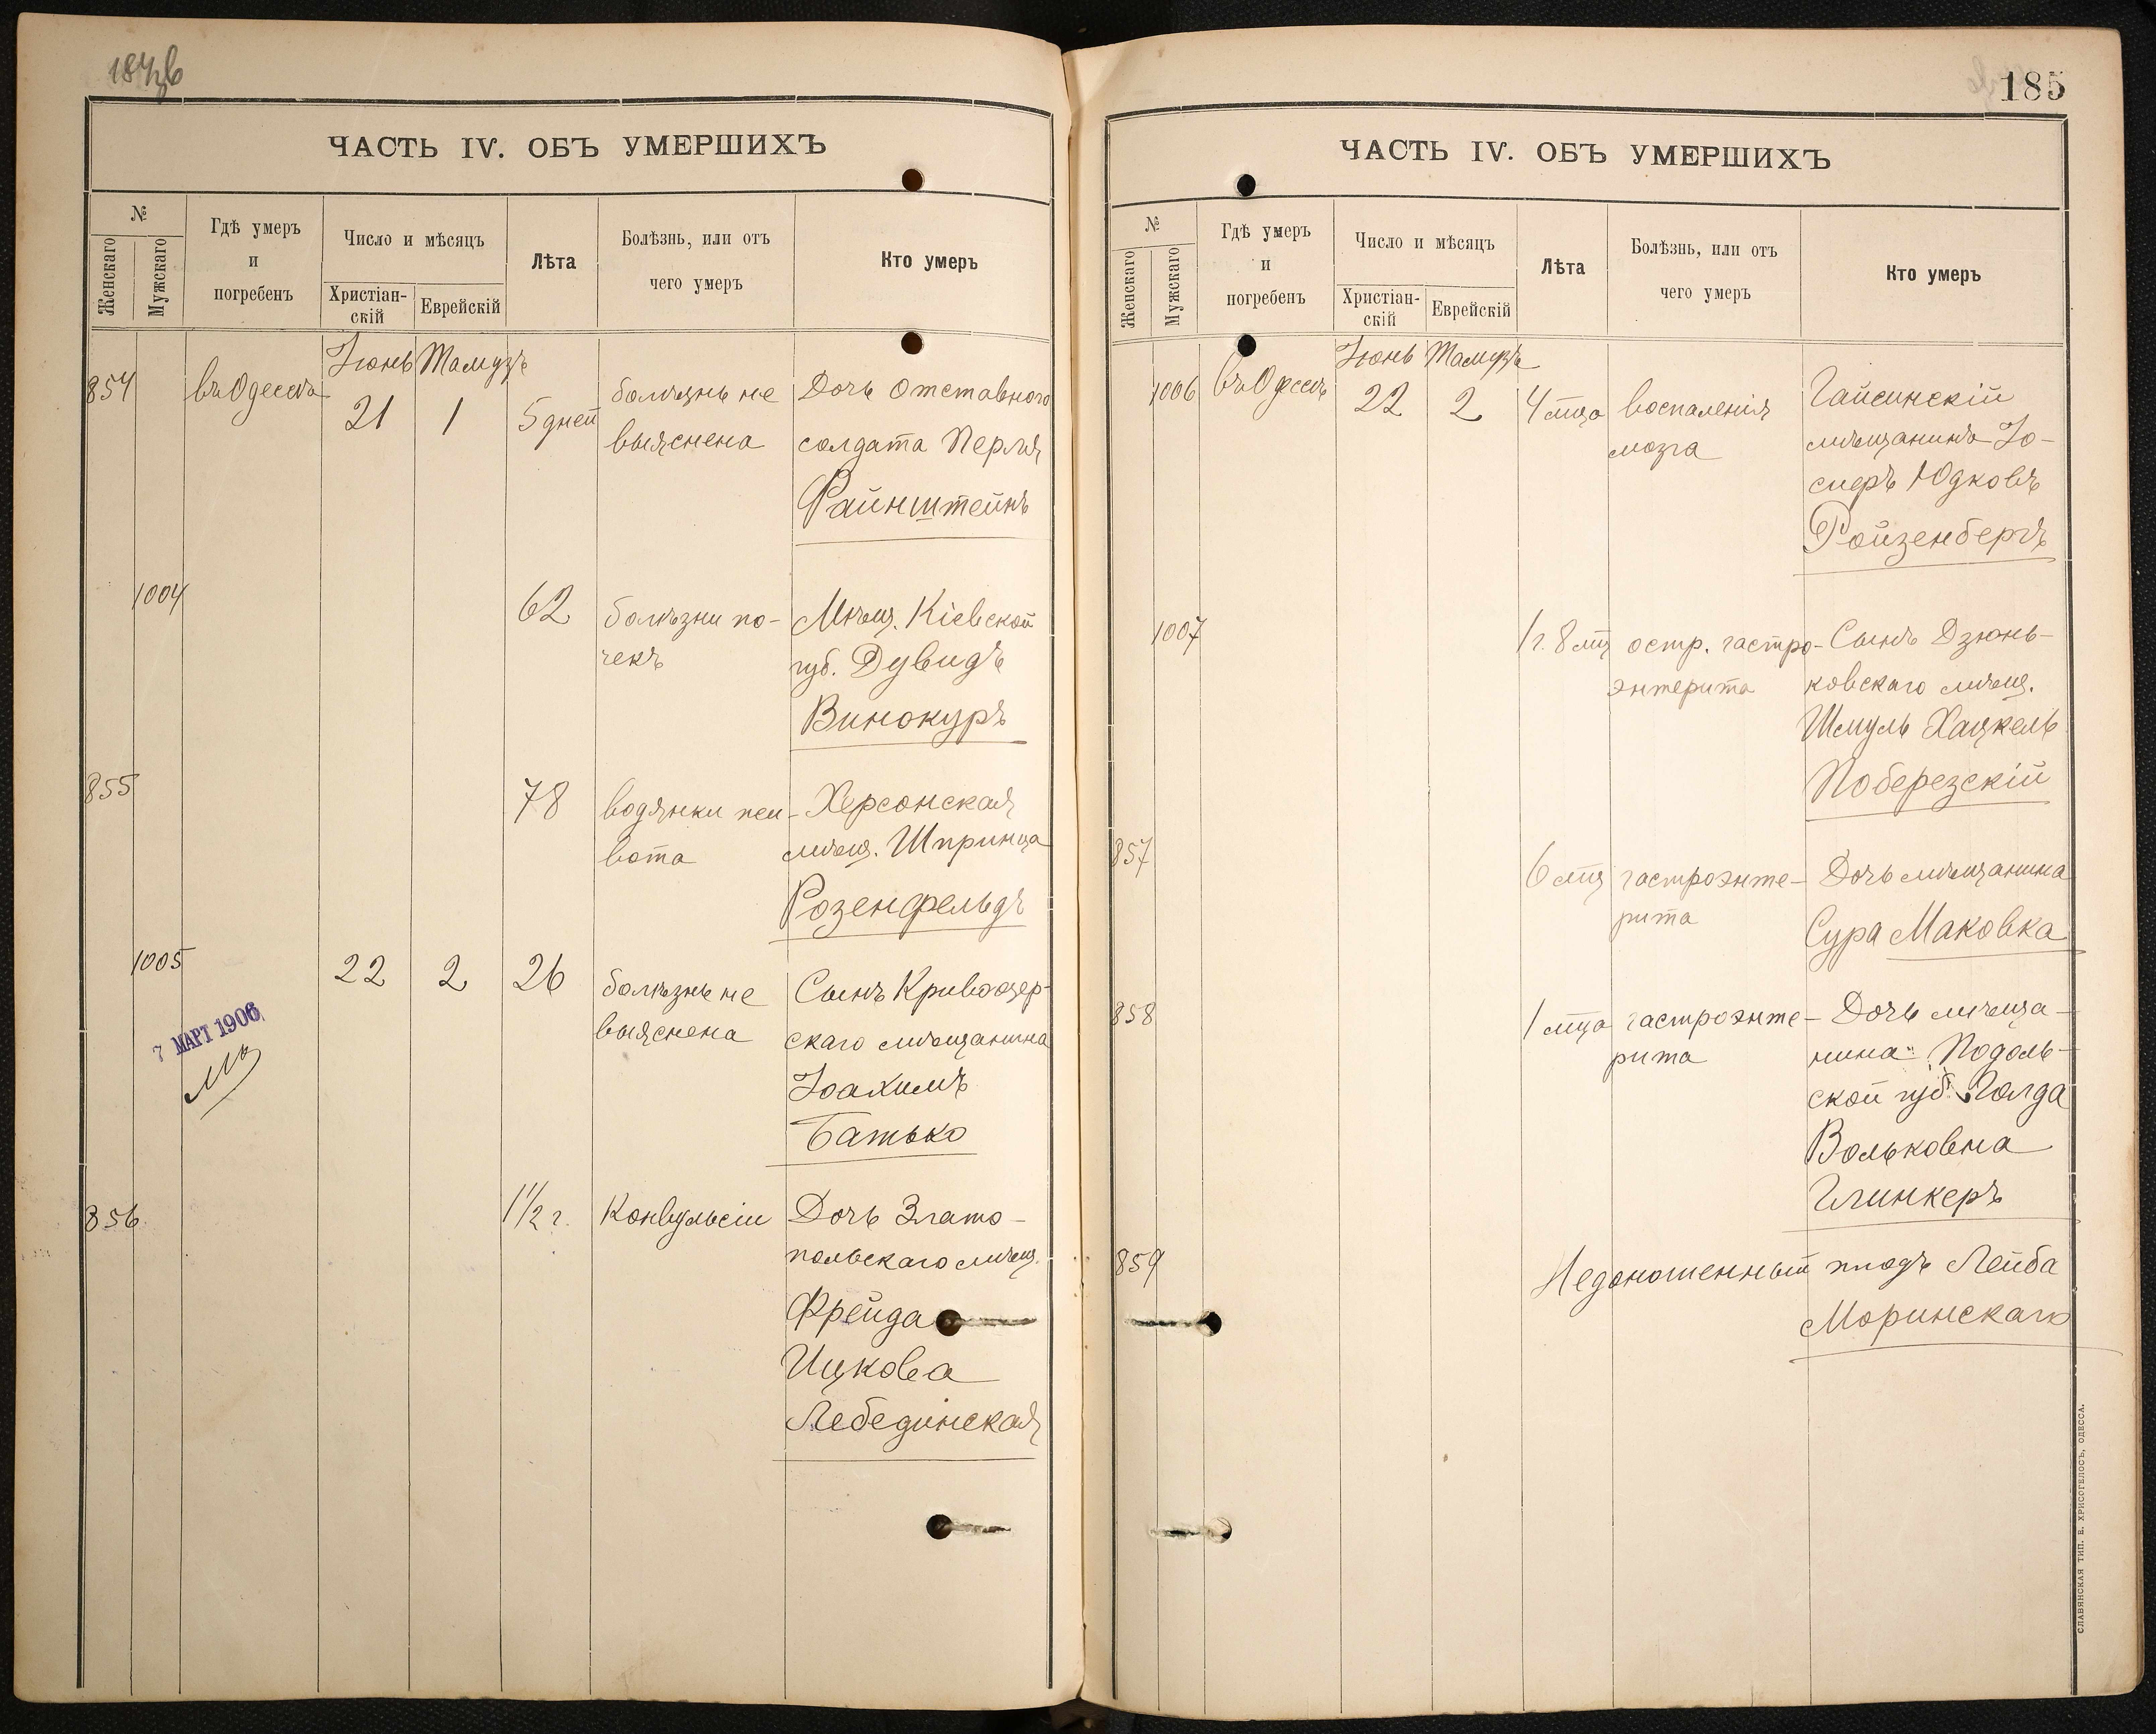 184об
ЧАСТЬ IV. ОБЪ УМЕРШИХЪ
№
Женскаго
Мужскаго
Гдѣ умеръ
и
погребенъ
Число и мѣсяцъ
Христіан-
скій
Еврейскій
Лѣта
Болѣзнь, или отъ
чего умеръ
Кто умеръ
Іюнь Тамузъ
854 въ Одессѣ 21 1 5 дней болѣзнь не Дочь отставного
выяснена солдата Перля
Файнштейнъ
1004 62 болѣзни по- Мѣщ. Кіевской
чекъ губ. Дувидъ
Винокуръ
855 78 водянки жи- Херсонская
вота мѣщ. Шпринца
Розенфельдъ
1005 22 2 26 болѣзнь не Сынъ Кривоозер-
выяснена скаго мѣщанина
Іоахимъ
Батько
7 МАРТ 1906
856 1 1/2 г. Конвульсіи Дочь Злато-
польскаго мѣщ.
Фрейда
Ицкова
Лебединская
185
ЧАСТЬ IV. ОБЪ УМЕРШИХЪ
№
Женскаго
Мужскаго
Гдѣ умеръ
и
погребенъ
Число и мѣсяцъ
Христіан-
скій
Еврейскій
Лѣта
Болѣзнь, или отъ
чего умеръ
Кто умеръ
Іюнь Тамузъ
1006 въ Одессѣ 22 2 4 мца воспаленія Гайсинскій
мозга мѣщанинъ Іо-
сифъ Юдковъ
Ройзенбергъ
1007 1 г. 8 мц остр. гастро- Сынъ Дзюнь-
энтерита ковскаго мѣщ.
Шмуль Хацкель
Поберезскій
857 6 мц гастроэнте- Дочь мѣщанина
рита Сура Маковка
858 1 мца гастроэнте- Дочь мѣща-
рита нина Подоль-
ской губ. Голда
Вольковна
Глинкеръ
859 Недоношенный плодъ Лейба
Моринскаго
СЛАВЯНСКАЯ ТИП. Е. ХРИСОГЕЛОСЪ, ОДЕССА.